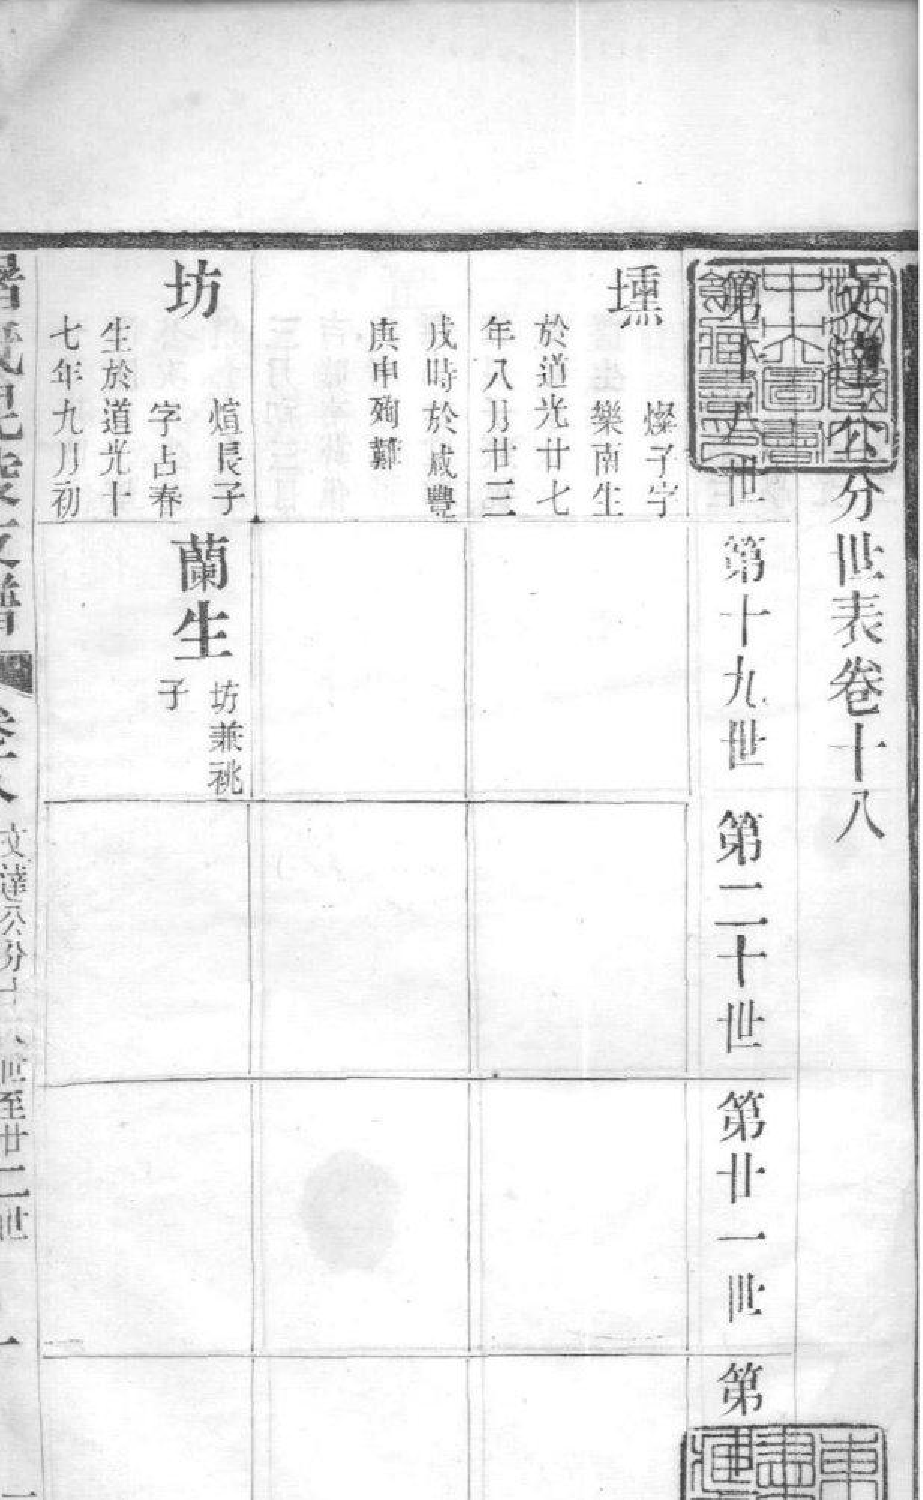 文達公分世表卷十八
第十八世
第十九世
第二十世
第廿一世
第
壎
燦子字
樂南生
於道光廿七
年八月廿三
戌時於咸豐
庚申殉難
坊
煊長子
字占春
生於道光十
七年九月初
蘭生
坊兼祧
子
支譜
文達公分十八世至廿二世